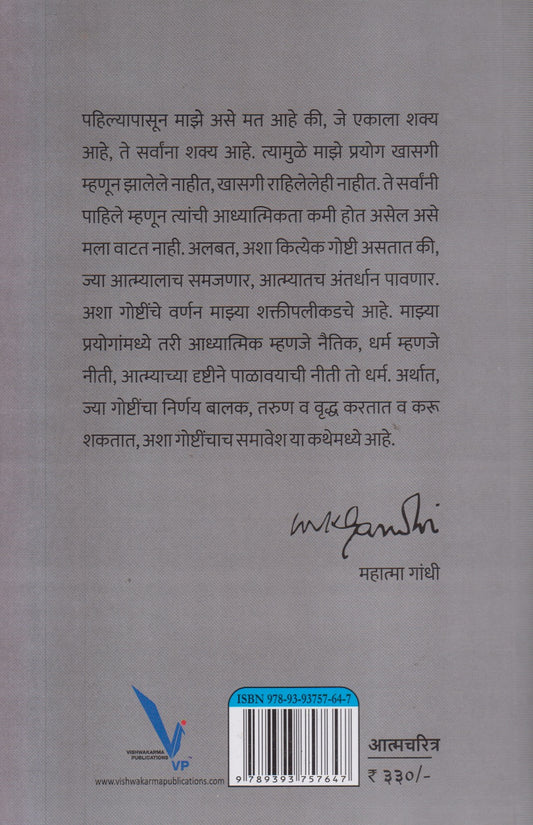 पहिल्यापासून माझे असे मत आहे की, जे एकाला शक्य
आहे, ते सर्वांना शक्य आहे. त्यामुळे माझे प्रयोग खासगी
म्हणून झालेले नाहीत, खासगी राहिलेलेही नाहीत. ते सर्वांनी
पाहिले म्हणून त्यांची आध्यात्मिकता कमी होत असेल असे
मला वाटत नाही. अलबत, अशा कित्येक गोष्टी असतात की,
ज्या आत्म्यालाच समजणार, आत्म्यातच अंतर्धान पावणार.
अशा गोष्टींचे वर्णन माझ्या शक्तीपलीकडचे आहे. माझ्या
प्रयोगांमध्ये तरी आध्यात्मिक म्हणजे नैतिक, धर्म म्हणजे
नीती, आत्म्याच्या दृष्टीने पाळावयाची नीती तो धर्म. अर्थात,
ज्या गोष्टींचा निर्णय बालक, तरुण व वृद्ध करतात व करू
शकतात, अशा गोष्टींचाच समावेश या कथेमध्ये आहे.
mkgandhi
महात्मा गांधी
VISHWAKARMA
PUBLICATIONS
VP
www.vishwakarmapublications.com
ISBN 978-93-93757-64-7
9 789393 757647
आत्मचरित्र
₹ ३३०/-